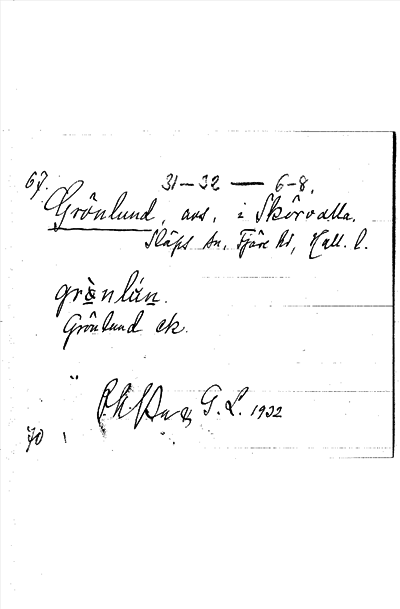 67.
31–32 — 6–8.
Grönlund, avs. i Skörvalla.
Släps sn, Fjäre hd, Hall. l.
grö̀nlún.
Grönlund ek.
G. L. 1932
70